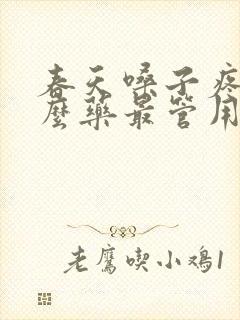 春天嗓子疼
麽藥最管用
老鷹喫小鸡1